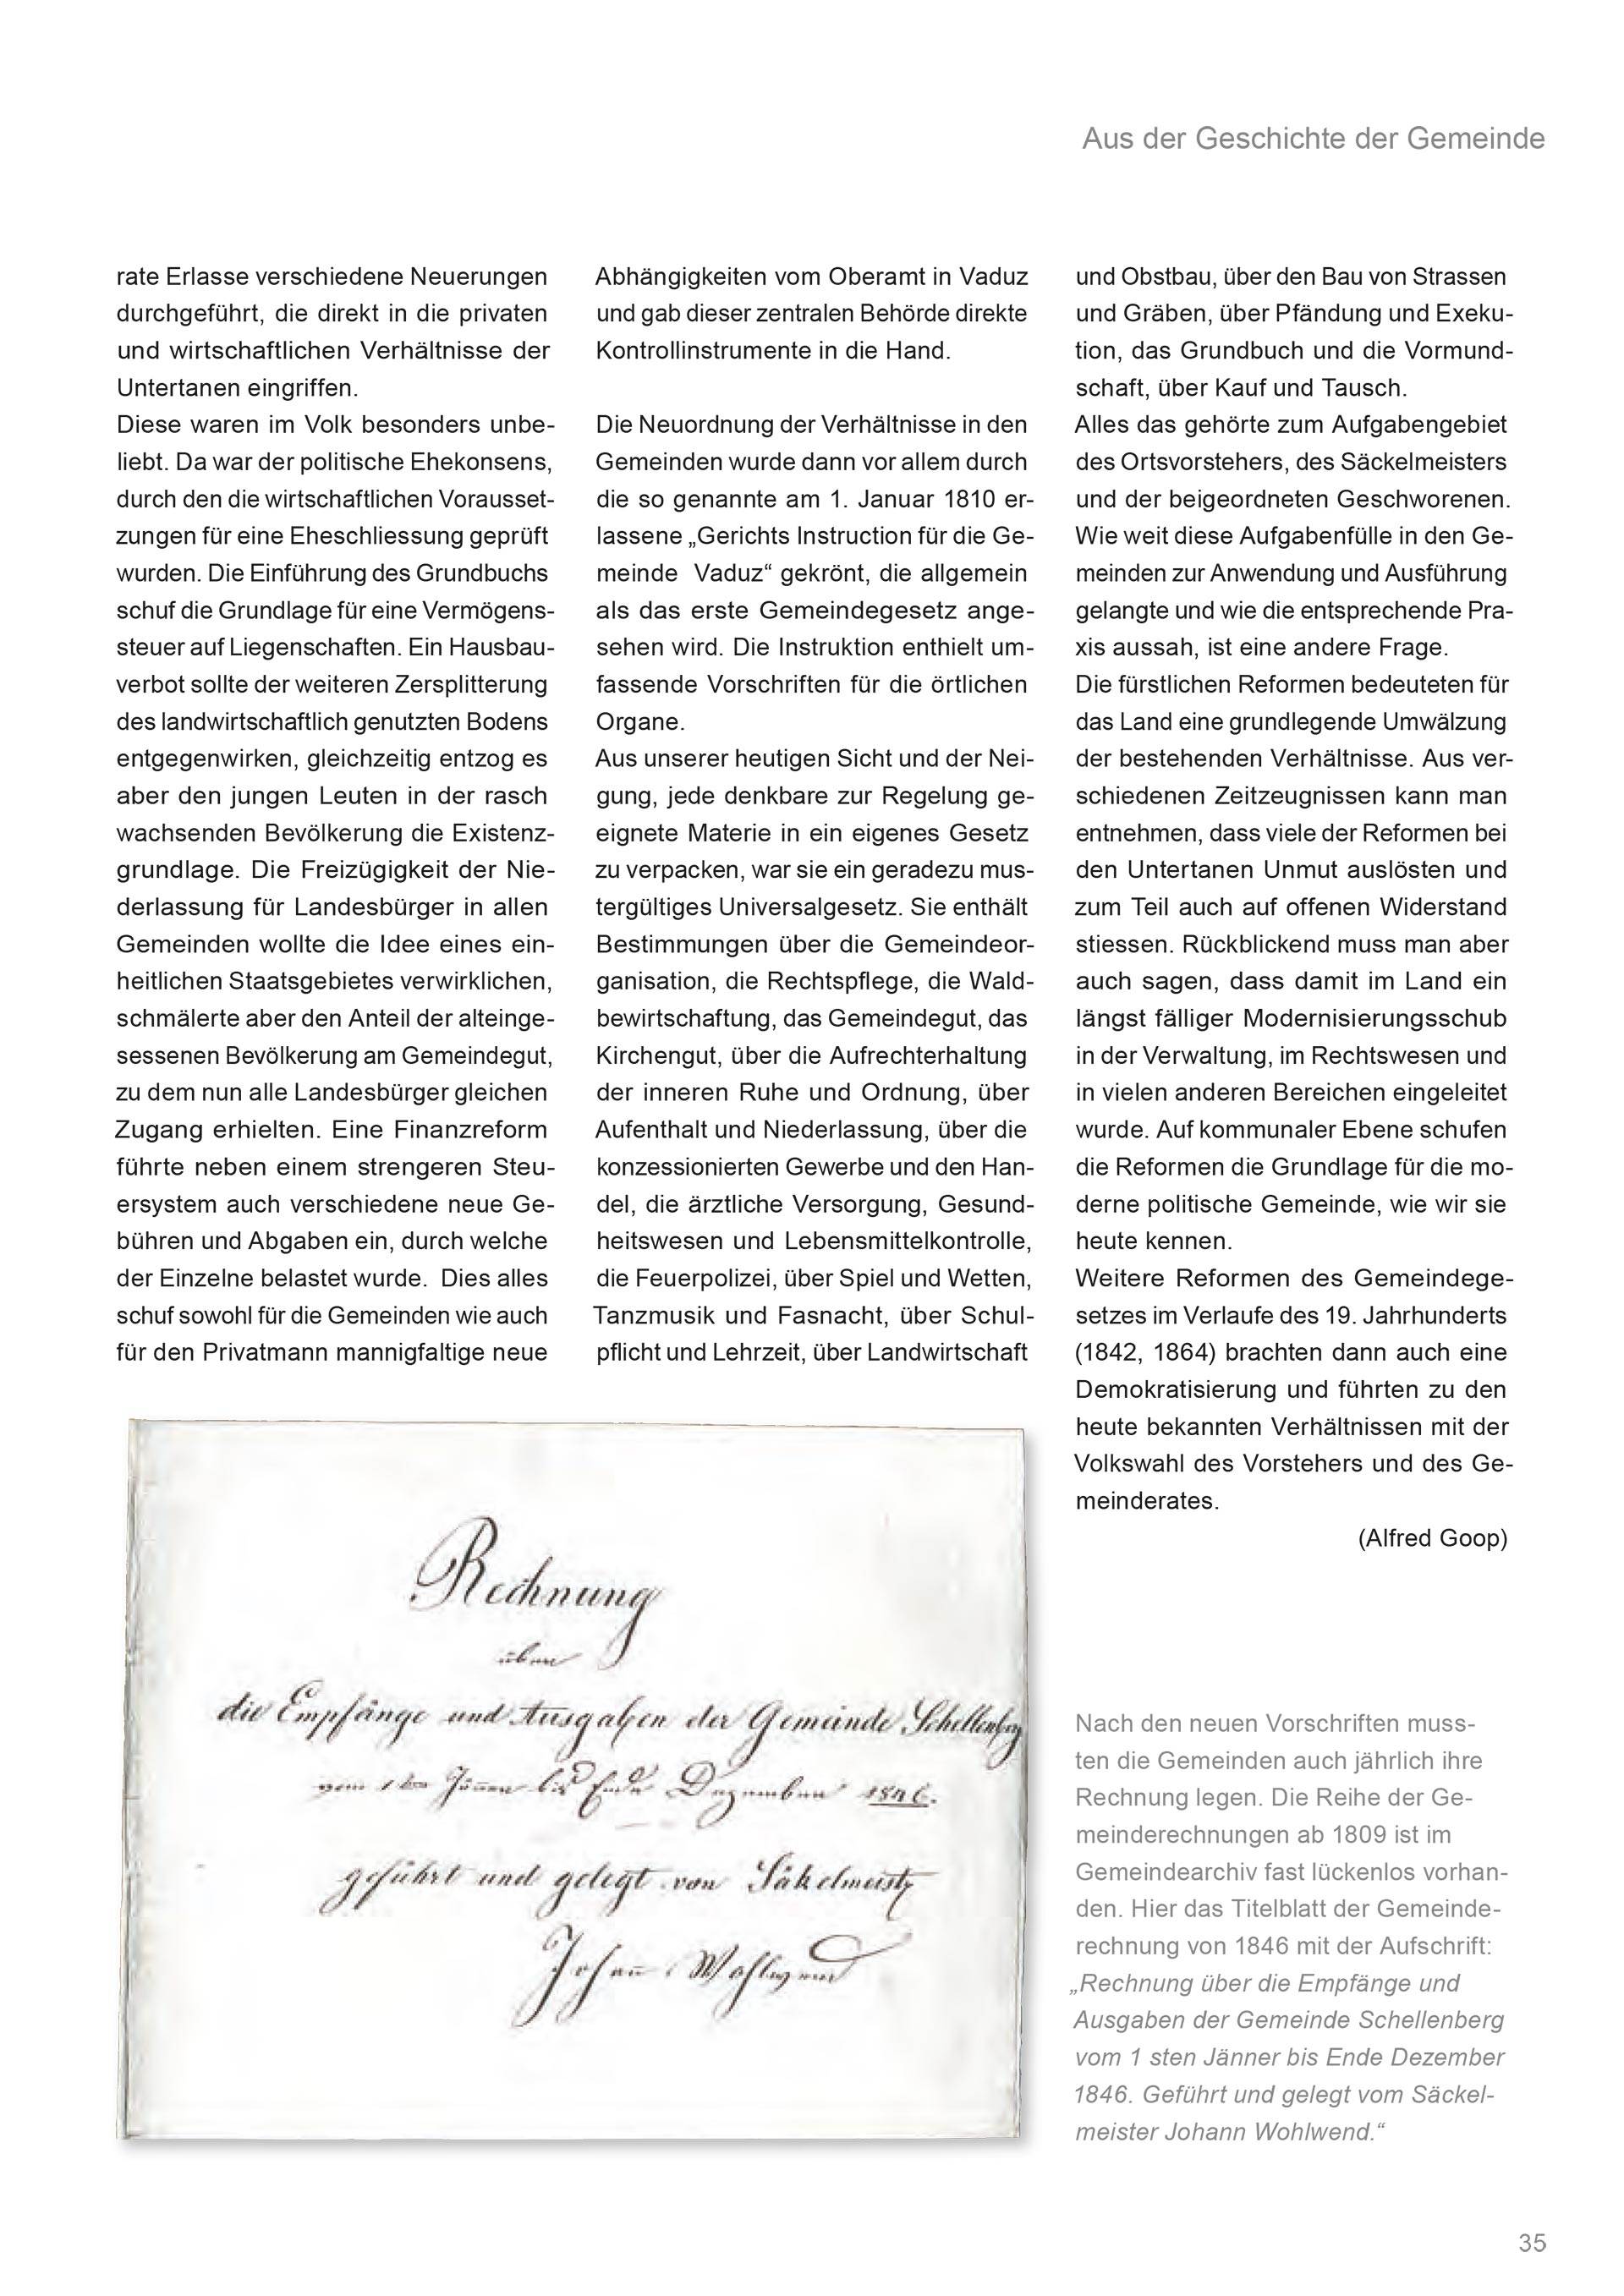 Aus der Geschichte der Gemeinde
rate Erlasse verschiedene Neuerungen
durchgeführt, die direkt in die privaten
und wirtschaftlichen Verhältnisse der
Untertanen eingriffen.
Diese waren im Volk besonders unbe-
liebt. Da war der politische Ehekonsens,
durch den die wirtschaftlichen Vorausset-
zungen für eine Eheschliessung geprüft
wurden. Die Einführung des Grundbuchs
schuf die Grundlage für eine Vermögens-
steuer auf Liegenschaften. Ein Hausbau-
verbot sollte der weiteren Zersplitterung
des landwirtschaftlich genutzten Bodens
entgegenwirken, gleichzeitig entzog es
aber den jungen Leuten in der rasch
wachsenden Bevölkerung die Existenz-
grundlage. Die Freizügigkeit der Nie-
derlassung für Landesbürger in allen
Gemeinden wollte die Idee eines ein-
heitlichen Staatsgebietes verwirklichen,
schmälerte aber den Anteil der alteinge-
sessenen Bevölkerung am Gemeindegut,
zu dem nun alle Landesbürger gleichen
Zugang erhielten. Eine Finanzreform
führte neben einem strengeren Steu-
ersystem auch verschiedene neue Ge-
bühren und Abgaben ein, durch welche
der Einzelne belastet wurde. Dies alles
schuf sowohl für die Gemeinden wie auch
für den Privatmann mannigfaltige neue
Abhängigkeiten vom Oberamt in Vaduz
und gab dieser zentralen Behörde direkte
Kontrollinstrumente in die Hand.
Die Neuordnung der Verhältnisse in den
Gemeinden wurde dann vor allem durch
die so genannte am 1. Januar 1810 er-
lassene „Gerichts Instruction für die Ge-
meinde Vaduz“ gekrönt, die allgemein
als das erste Gemeindegesetz ange-
sehen wird. Die Instruktion enthielt um-
fassende Vorschriften für die örtlichen
Organe.
Aus unserer heutigen Sicht und der Nei-
gung, jede denkbare zur Regelung ge-
eignete Materie in ein eigenes Gesetz
zu verpacken, war sie ein geradezu mus-
tergültiges Universalgesetz. Sie enthält
Bestimmungen über die Gemeindeor-
ganisation, die Rechtspflege, die Wald-
bewirtschaftung, das Gemeindegut, das
Kirchengut, über die Aufrechterhaltung
der inneren Ruhe und Ordnung, über
Aufenthalt und Niederlassung, über die
konzessionierten Gewerbe und den Han-
del, die ärztliche Versorgung, Gesund-
heitswesen und Lebensmittelkontrolle,
die Feuerpolizei, über Spiel und Wetten,
Tanzmusik und Fasnacht, über Schul-
pflicht und Lehrzeit, über Landwirtschaft
und Obstbau, über den Bau von Strassen
und Gräben, über Pfändung und Exeku-
tion, das Grundbuch und die Vormund-
schaft, über Kauf und Tausch.
Alles das gehörte zum Aufgabengebiet
des Ortsvorstehers, des Säckelmeisters
und der beigeordneten Geschworenen.
Wie weit diese Aufgabenfülle in den Ge-
meinden zur Anwendung und Ausführung
gelangte und wie die entsprechende Pra-
xis aussah, ist eine andere Frage.
Die fürstlichen Reformen bedeuteten für
das Land eine grundlegende Umwälzung
der bestehenden Verhältnisse. Aus ver-
schiedenen Zeitzeugnissen kann man
entnehmen, dass viele der Reformen bei
den Untertanen Unmut auslösten und
zum Teil auch auf offenen Widerstand
stiessen. Rückblickend muss man aber
auch sagen, dass damit im Land ein
längst fälliger Modernisierungsschub
in der Verwaltung, im Rechtswesen und
in vielen anderen Bereichen eingeleitet
wurde. Auf kommunaler Ebene schufen
die Reformen die Grundlage für die mo-
derne politische Gemeinde, wie wir sie
heute kennen.
Weitere Reformen des Gemeindege-
setzes im Verlaufe des 19. Jahrhunderts
(1842, 1864) brachten dann auch eine
Demokratisierung und führten zu den
heute bekannten Verhältnissen mit der
Volkswahl des Vorstehers und des Ge-
meinderates.
(Alfred Goop)
Rechnung
über
die Empfänge und Ausgaben der Gemeinde Schellenberg
vom 1ten Jänner bis Ende Dezember 1846.
geführt und gelegt von Säkelmeister
Johann Wohlwend
Nach den neuen Vorschriften muss-
ten die Gemeinden auch jährlich ihre
Rechnung legen. Die Reihe der Ge-
meinderechnungen ab 1809 ist im
Gemeindearchiv fast lückenlos vorhan-
den. Hier das Titelblatt der Gemeinde-
rechnung von 1846 mit der Aufschrift:
„Rechnung über die Empfänge und
Ausgaben der Gemeinde Schellenberg
vom 1 sten Jänner bis Ende Dezember
1846. Geführt und gelegt vom Säckel-
meister Johann Wohlwend.“
35